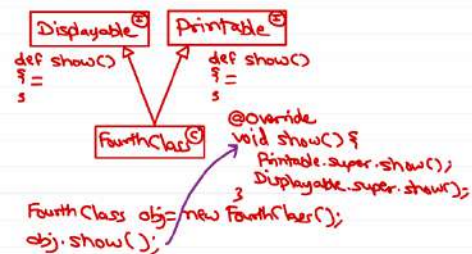 Displayable I
Printable I
def show()
{ =
}
def show()
{ =
}
FourthClass C
@Override
void show() {
Printable.super.show();
Displayable.super.show();
}
FourthClass obj = new FourthClass();
obj.show();